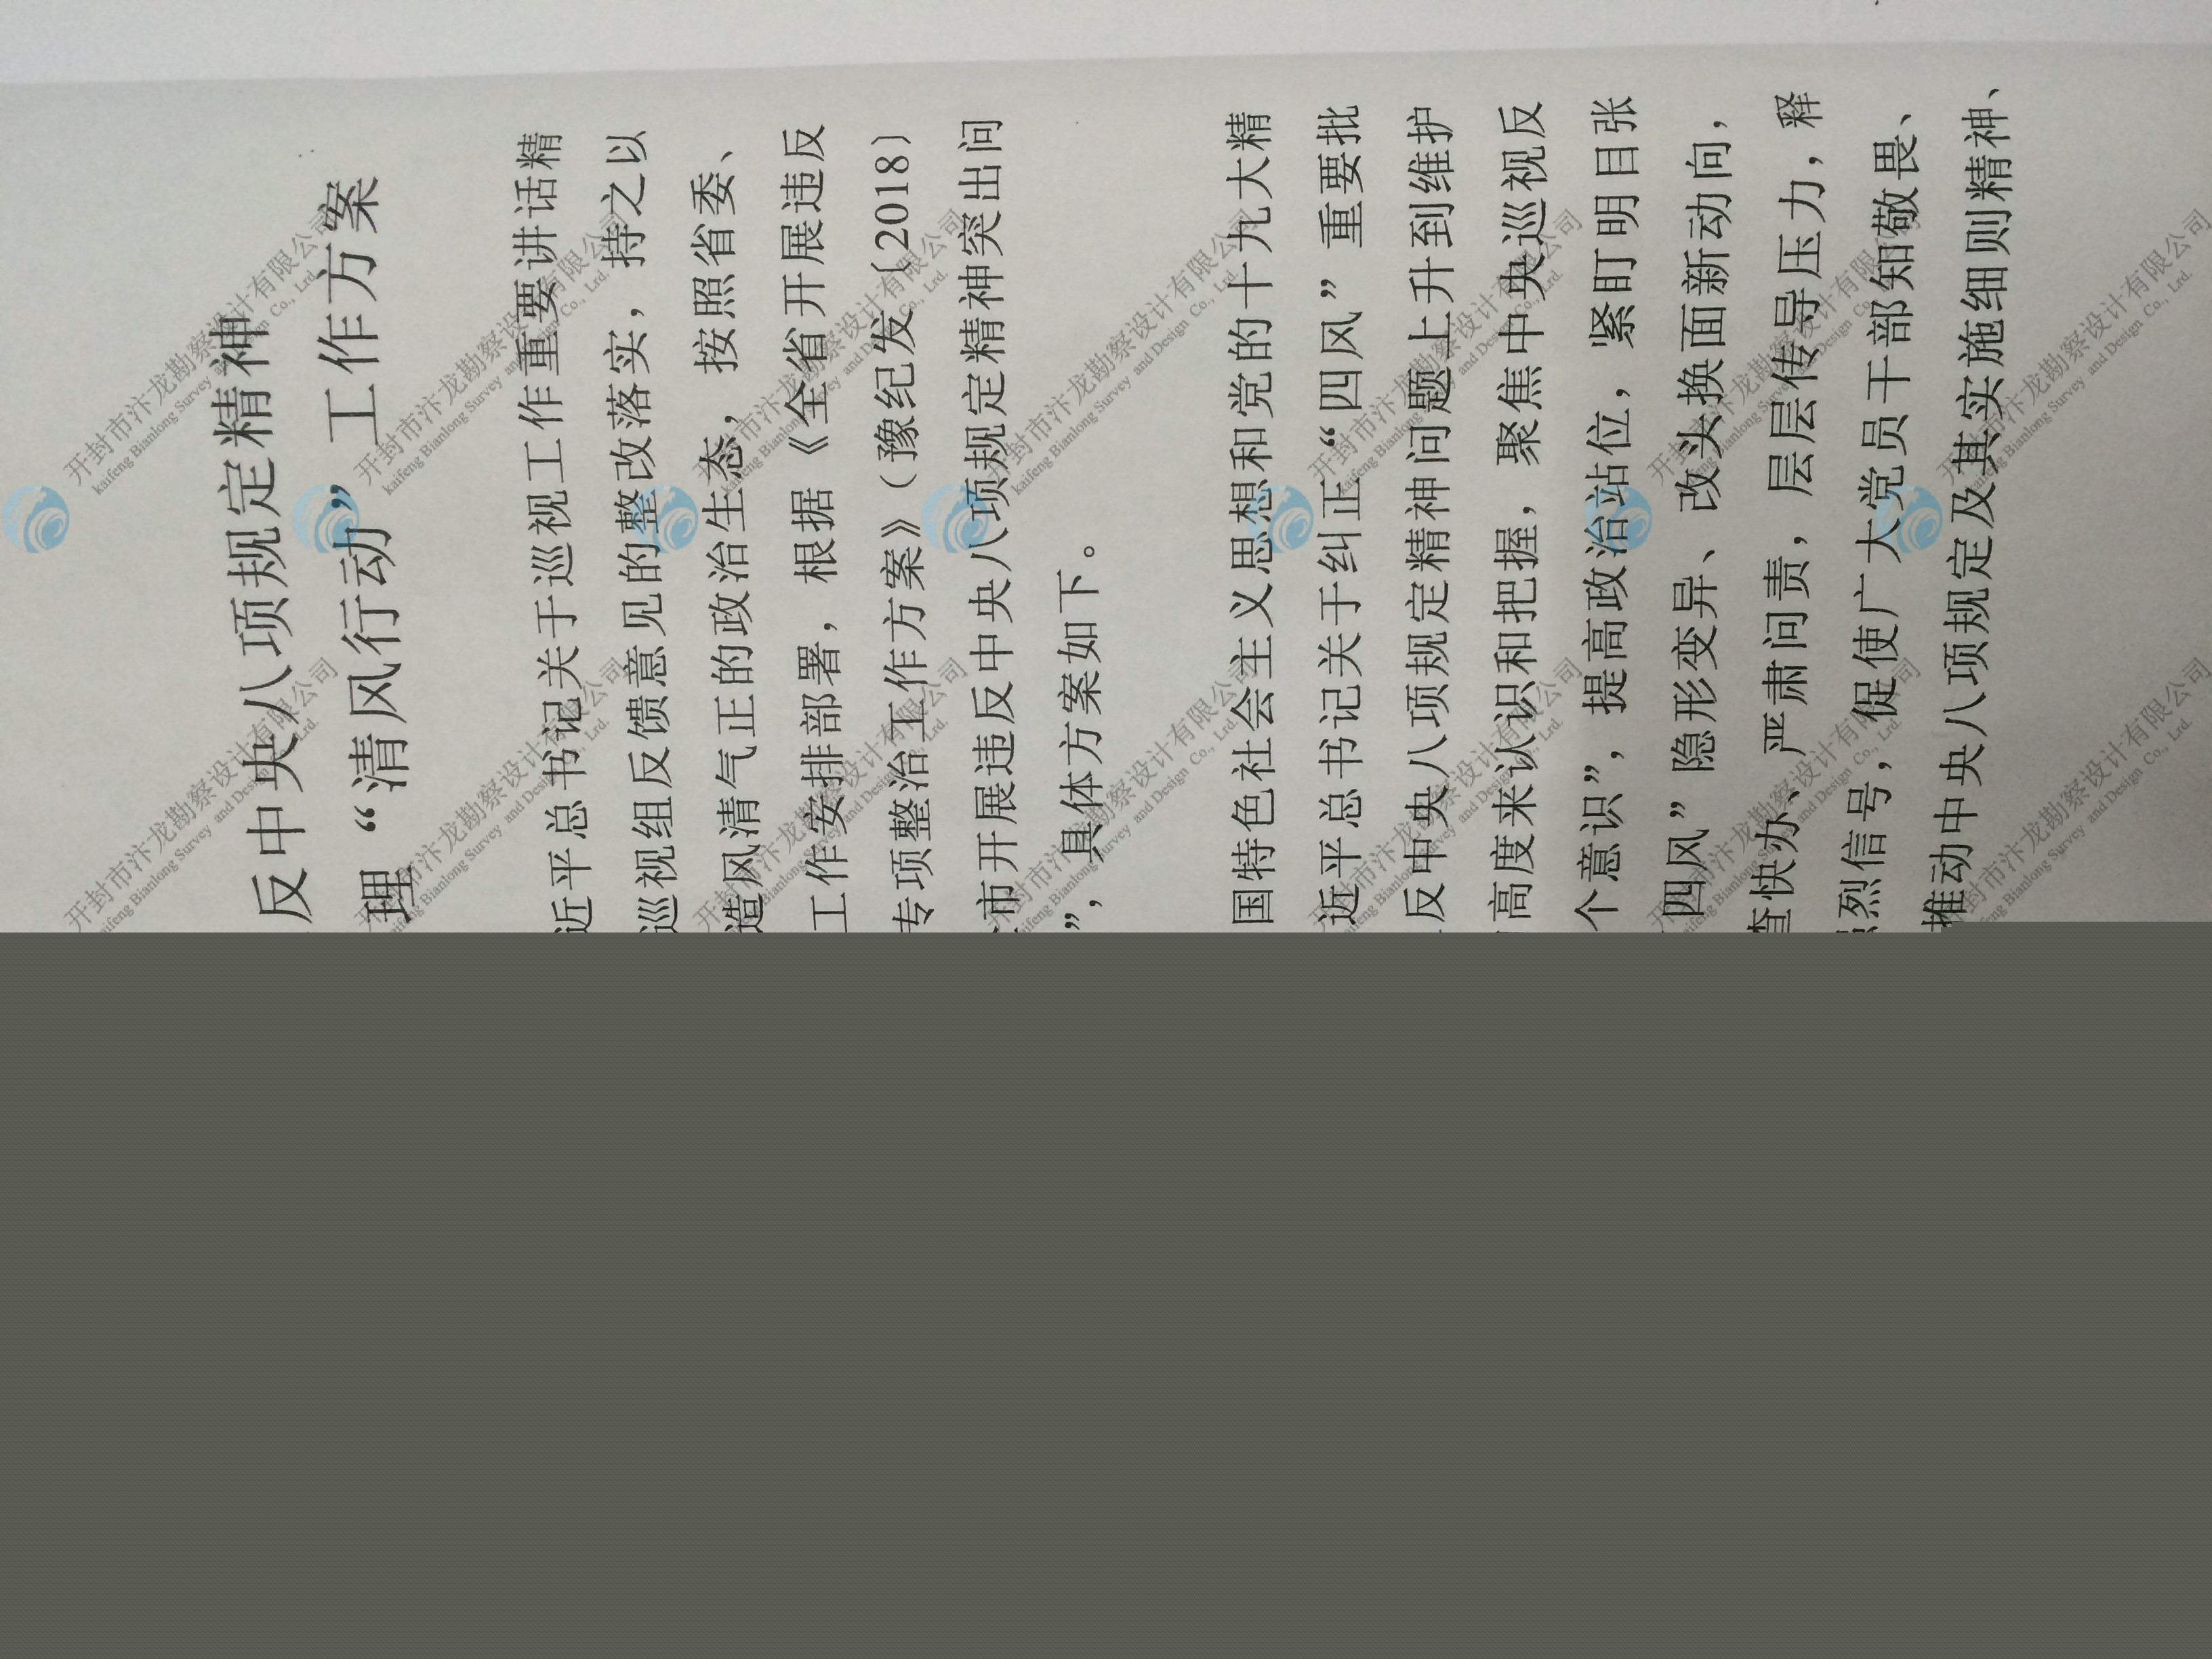 反中央八项规定精神
理“清风行动”工作方案
近平总书记关于巡视工作重要讲话精
巡视组反馈意见的整改落实，持之以
造风清气正的政治生态，按照省委、
工作安排部署，根据《全省开展违反
专项整治工作方案》（豫纪发〔2018〕
市开展违反中央八项规定精神突出问
”，具体方案如下。
国特色社会主义思想和党的十九大精
近平总书记关于纠正“四风”重要批
反中央八项规定精神问题上升到维护
高度来认识和把握，聚焦中央巡视反
个意识”，提高政治站位，紧盯明目张
四风”隐形变异、改头换面新动向，
查快办、严肃问责，层层传导压力，释
烈信号，促使广大党员干部知敬畏、
推动中央八项规定及其实施细则精神、
开封市汴龙勘察设计有限公司
kaifeng Bianlong Survey and Design Co., Lrd.